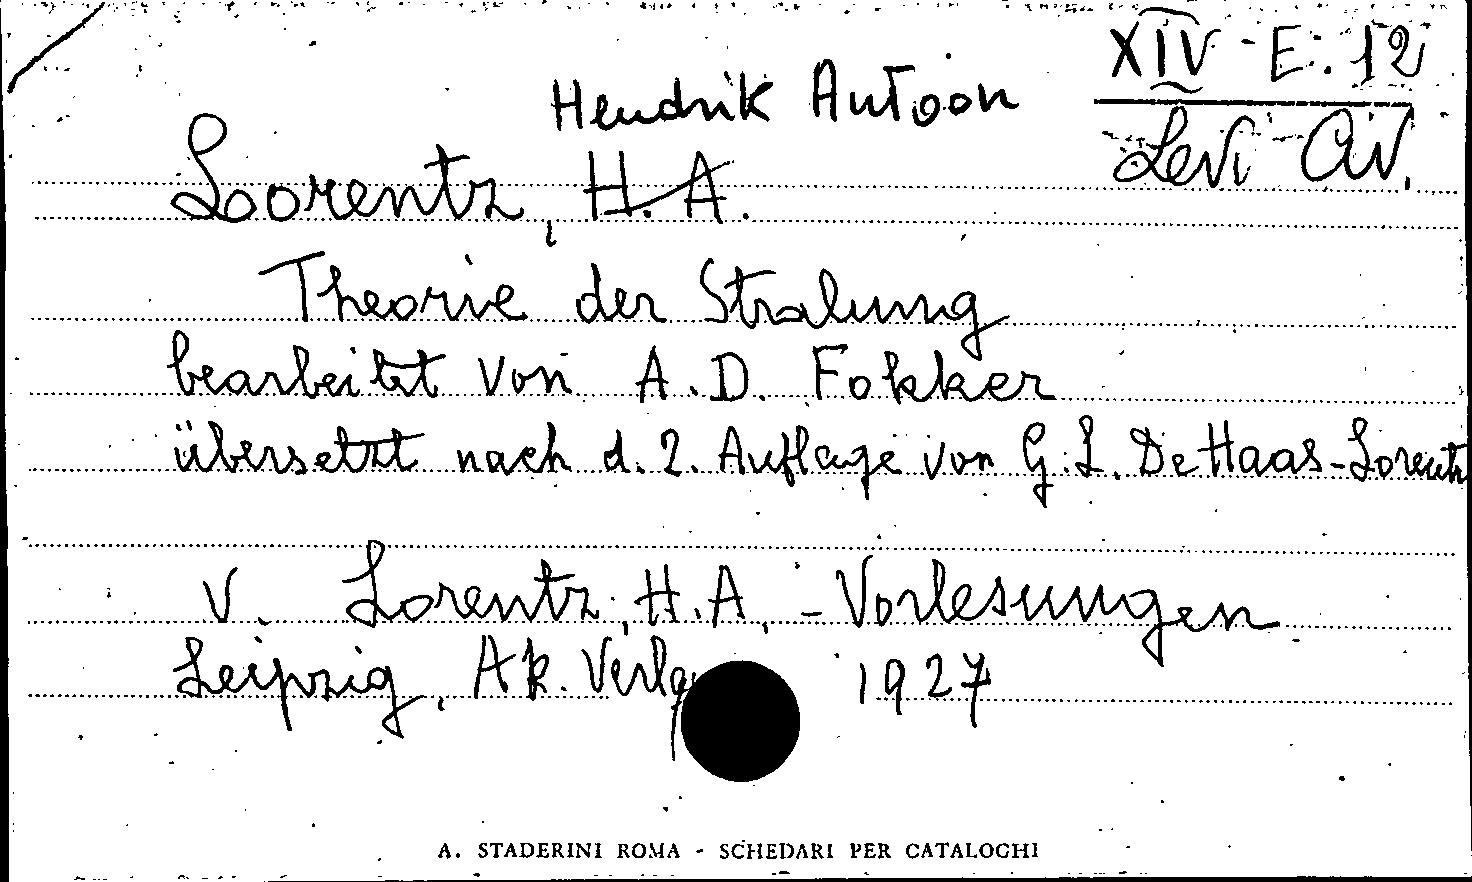 XIV - E. 12
Levi-Civ.
Hendrik Antoon
Lorentz, H. A.
Theorie der Stralung
bearbeitet von A. D. Fokker
übersetzt nach d. 2. Auflage von G. L. De Haas-Lorentz
V. Lorentz, H. A. - Vorlesungen
Leipzig, Ak. Verlg 1927
A. STADERINI ROMA - SCHEDARI PER CATALOGHI